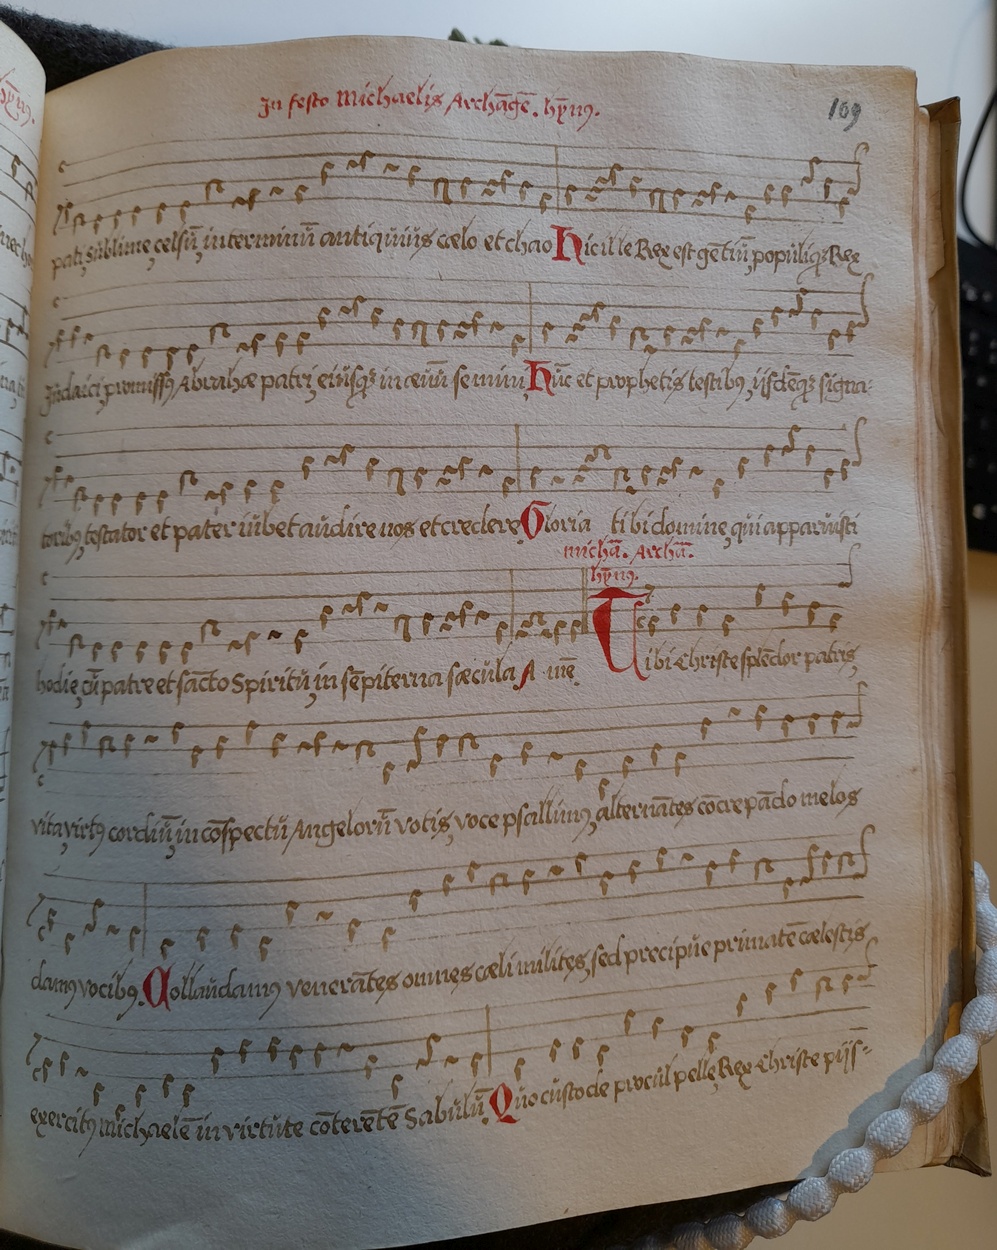 In festo Michaelis Archāgē. hȳnꝰ.
109
pati, sublime, celsū, interminū antiquius cælo et chao Hic ille Rex est gētiū, populiqꝫ Rex
Iudaici, promissꝰ Abrahæ patri, eiusqꝫ in ævū semini, Hūc et prophetis testibꝰ, iisdēqꝫ signa-
toribꝰ, testator et pater iubet audire nos et credere, Gloria tibi domine, qui apparuisti
michā. Archā.
hȳnꝰ.
hodie, cū patre et sancto Spiritu, in sēpiterna sæcula A mē.
Tibi Christe splēdor patris,
vita, virtꝰ cordiū, in cōspectu Angelorū votis, voce psallimꝰ, alternātes cōcrepādo melos
damꝰ vocibꝰ. Collaudamꝰ venerātes omnes cæli milites, sed precipue primatē cælestis
exercitꝰ michaelē in virtute cōterētē Sabulū Quo custode procul pelle, Rex Christe piis-